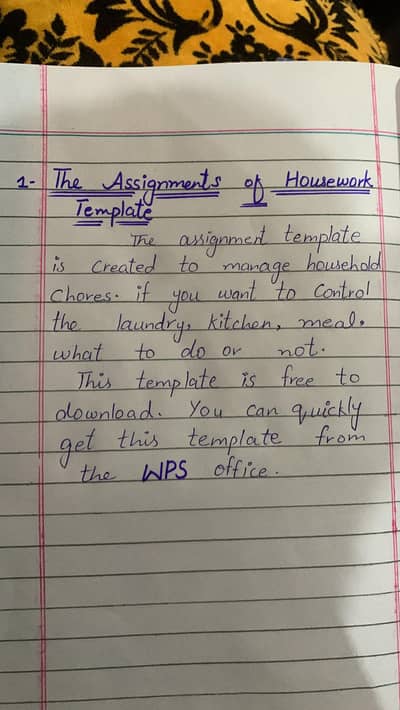 1- The Assignments of Housework
Template
The assignment template
is created to manage household
Chores. if you want to Control
the laundry, kitchen, meal.
what to do or not.
This template is free to
download. You can quickly
get this template from
the WPS office.